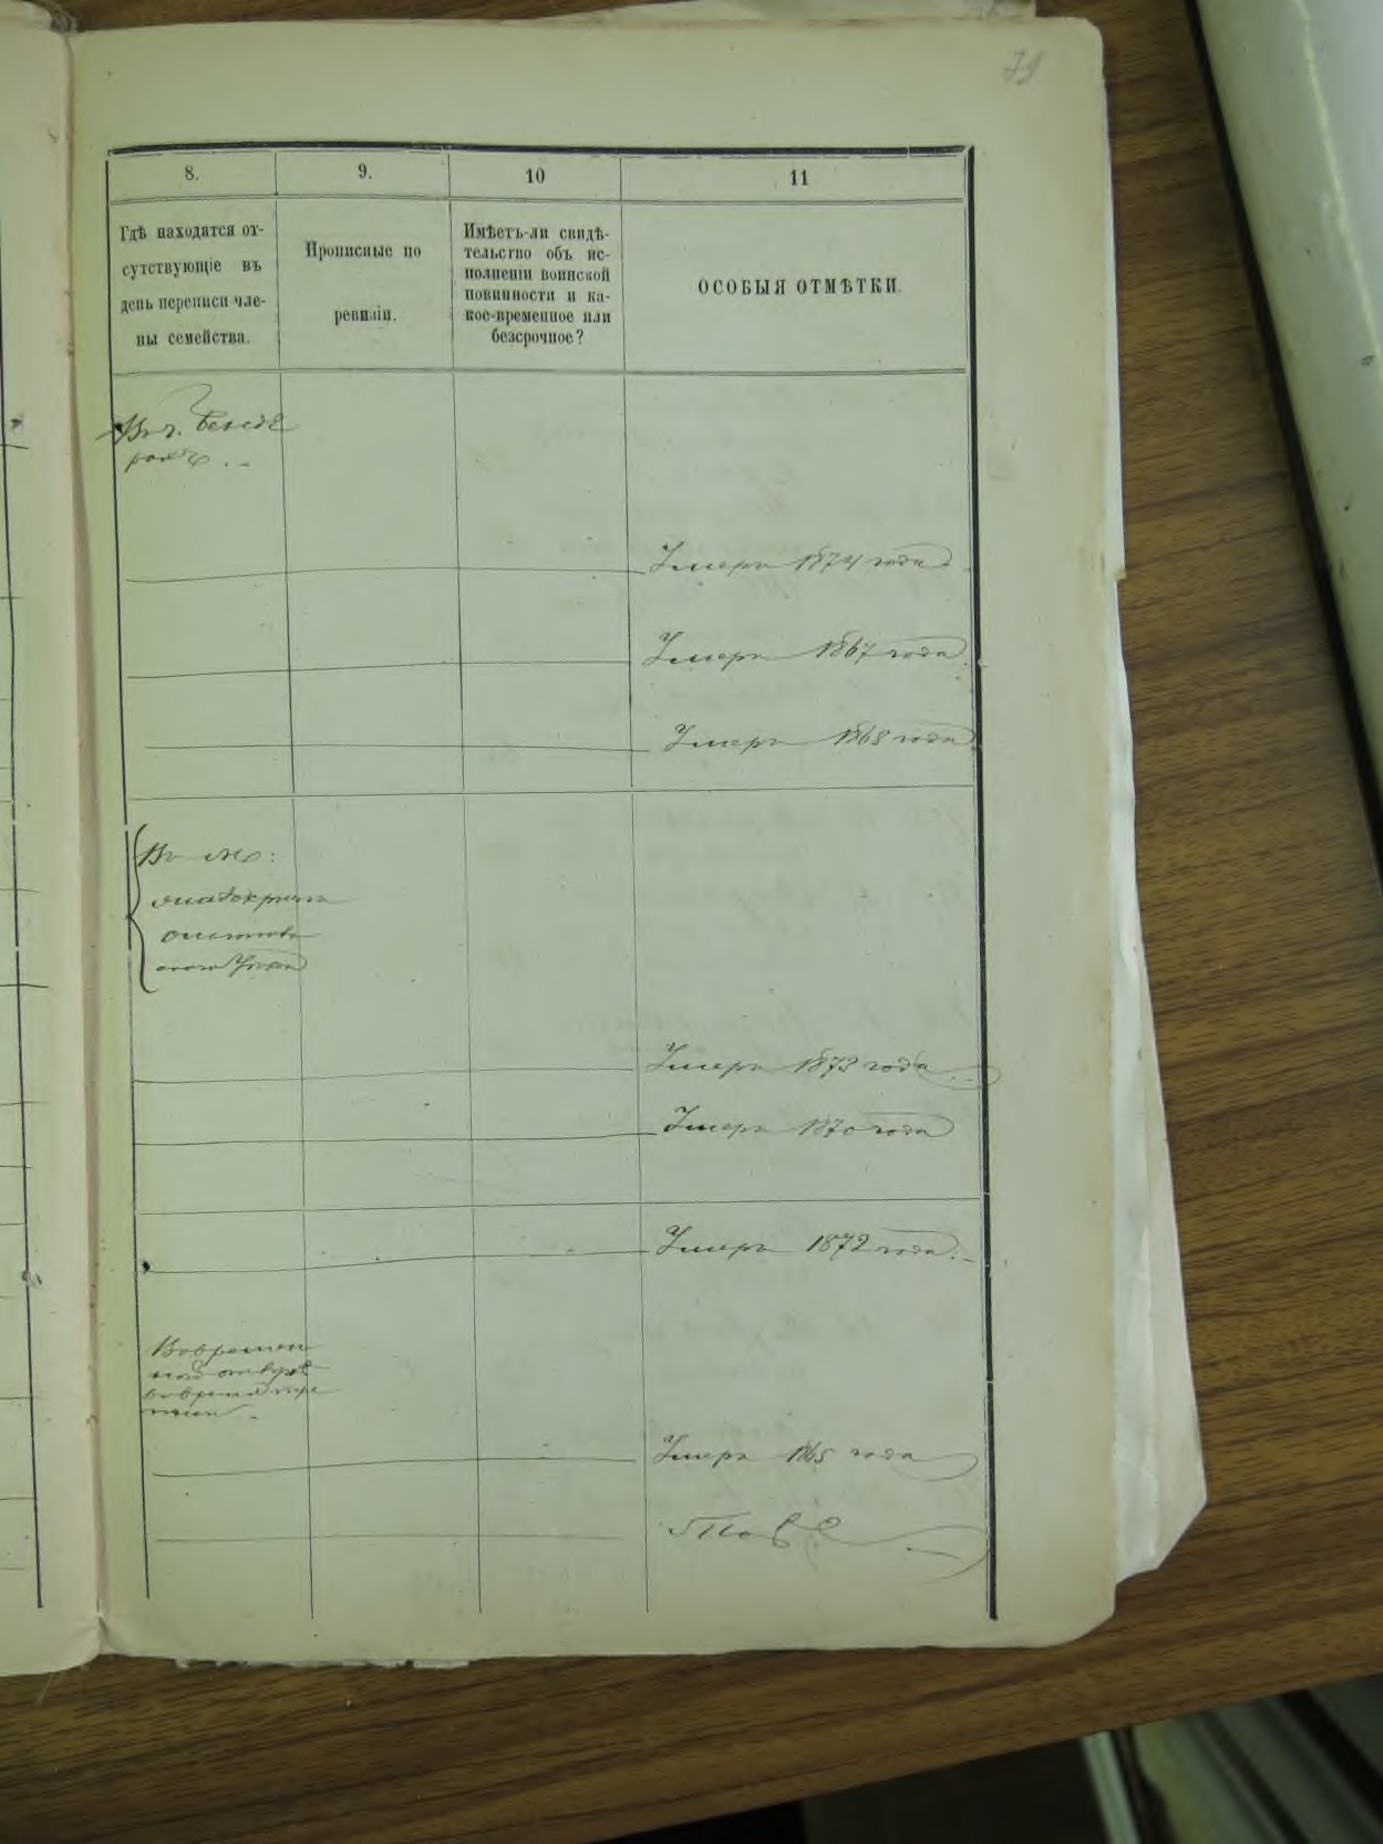 79
8.
9.
10
11
Гдѣ находятся от-
сутствующіе въ
день переписи чле-
ны семейства.
Прописные по
ревизіи.
Имѣетъ-ли свидѣ-
тельство объ ис-
полненіи воинской
повинности и ка-
кое-временное или
безсрочное?
ОСОБЫЯ ОТМѢТКИ.
Въ г. Бенде
рахъ
Умеръ 1874 года
Умеръ 1867 года
Умеръ 1868 года
Въ м:
Умеръ 1873 года
Умеръ 1870 года
Умеръ 1872 года.
Вовремен
во время пере
писи
Умеръ 1865 года